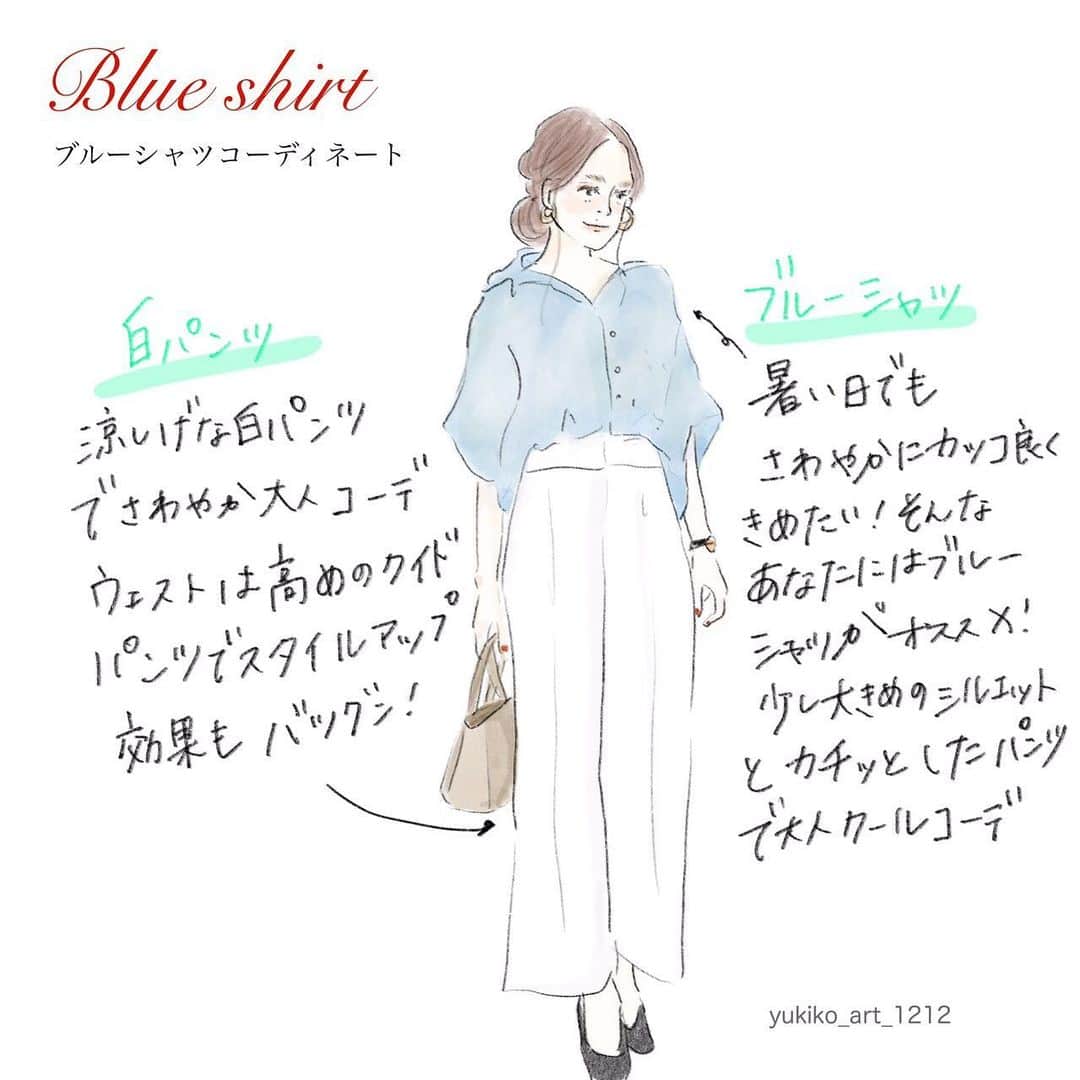 Blue shirt
ブルーシャツコーディネート
白パンツ
涼しげな白パンツ
でさわやか大人コーデ
ウェストは高めのワイド
パンツでスタイルアップ
効果もバツグン!
ブルーシャツ
暑い日でも
さわやかにカッコ良く
きめたい!そんな
あなたにはブルー
シャツがオススメ!
少し大きめのシルエット
とカチッとしたパンツ
で大人クールコーデ
yukiko_art_1212